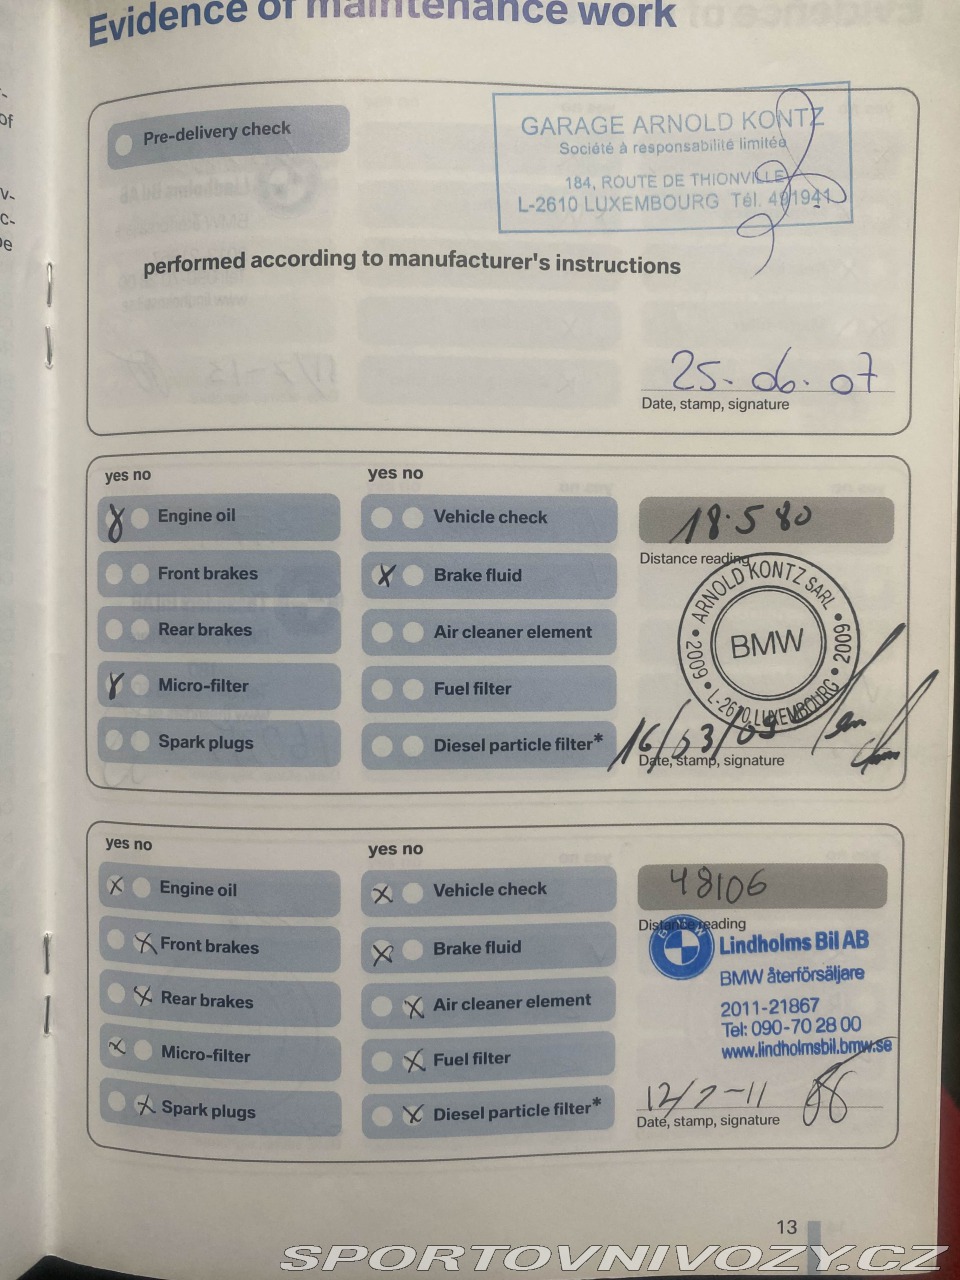 Evidence of maintenance work
Pre-delivery check
GARAGE ARNOLD KONTZ
Société à responsabilité limitée
184, ROUTE DE THIONVILLE
L-2610 LUXEMBOURG Tél. 491941
performed according to manufacturer's instructions
25.06.07
Date, stamp, signature
yes no
yes no
Engine oil
Vehicle check
18.580
Distance reading
Front brakes
Brake fluid
ARNOLD KONTZ SARL • 2009 • L-2610 LUXEMBOURG • 2009 •
BMW
Rear brakes
Air cleaner element
Micro-filter
Fuel filter
Spark plugs
Diesel particle filter*
16/03/09
Date, stamp, signature
yes no
yes no
Engine oil
Vehicle check
48106
Distance reading
Front brakes
Brake fluid
BMW
Lindholms Bil AB
BMW återförsäljare
2011-21867
Tel: 090-70 28 00
www.lindholmsbil.bmw.se
Rear brakes
Air cleaner element
Micro-filter
Fuel filter
Spark plugs
Diesel particle filter*
12/7-11
Date, stamp, signature
13
SPORTOVNIVOZY.CZ